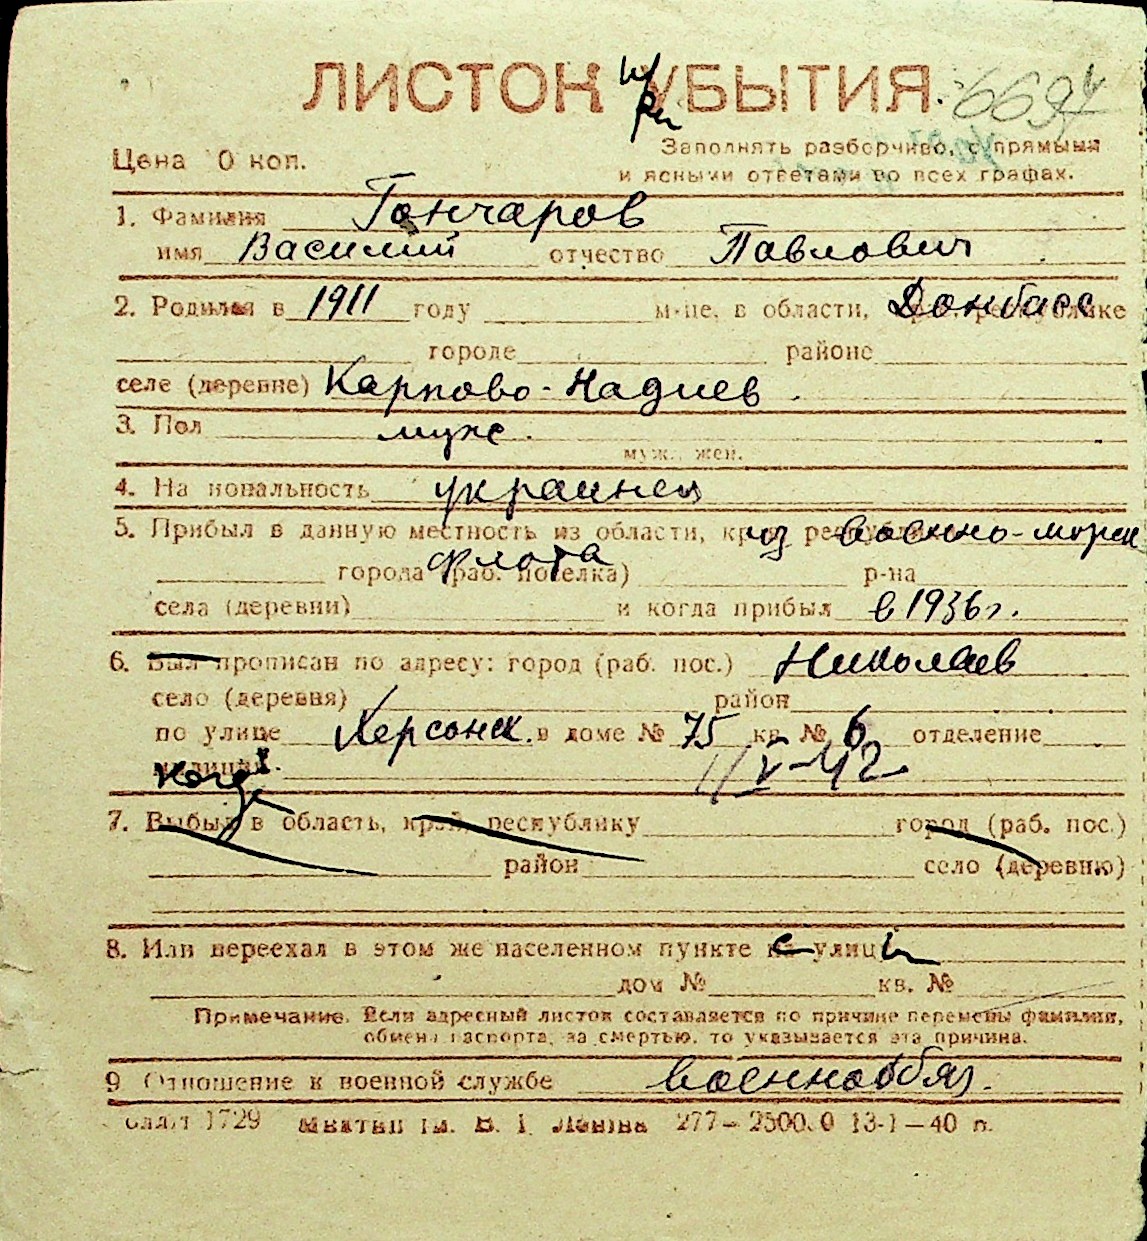 ЛИСТОК УБЫТИЯ. 6694
Цена 0 коп.
Заполнять разборчиво, с прямыми
и ясными ответами во всех графах.
1. Фамилия Гончаров
имя Василий отчество Павлович
2. Родился в 1911 году м-це, в области, Донбасс республике
городе районе
селе (деревне) Карпово-Надиев.
3. Пол муж.
муж., жен.
4. Национальность украинец
5. Прибыл в данную местность из области, из военно-морск
флота
города (раб. поселка) р-на
села (деревни) и когда прибыл в 1936 г.
6. Был прописан по адресу: город (раб. пос.) Николаев
село (деревня) район
по улице Херсонск. в доме № 75 кв. № 6 отделение
милиции. V-42
7. Выбыл в область, край, республику город (раб. пос.)
район село (деревню)
8. Или переехал в этом же населенном пункте с улицы
дом № кв. №
Примечание. Если адресный листок составляется по причине перемены фамилии,
обмена паспорта, за смертью, то указывается эта причина.
9 Отношение к военной службе военнообяз.
1729 им. В. И. Ленина 277—2500.0 13-1—40 п.